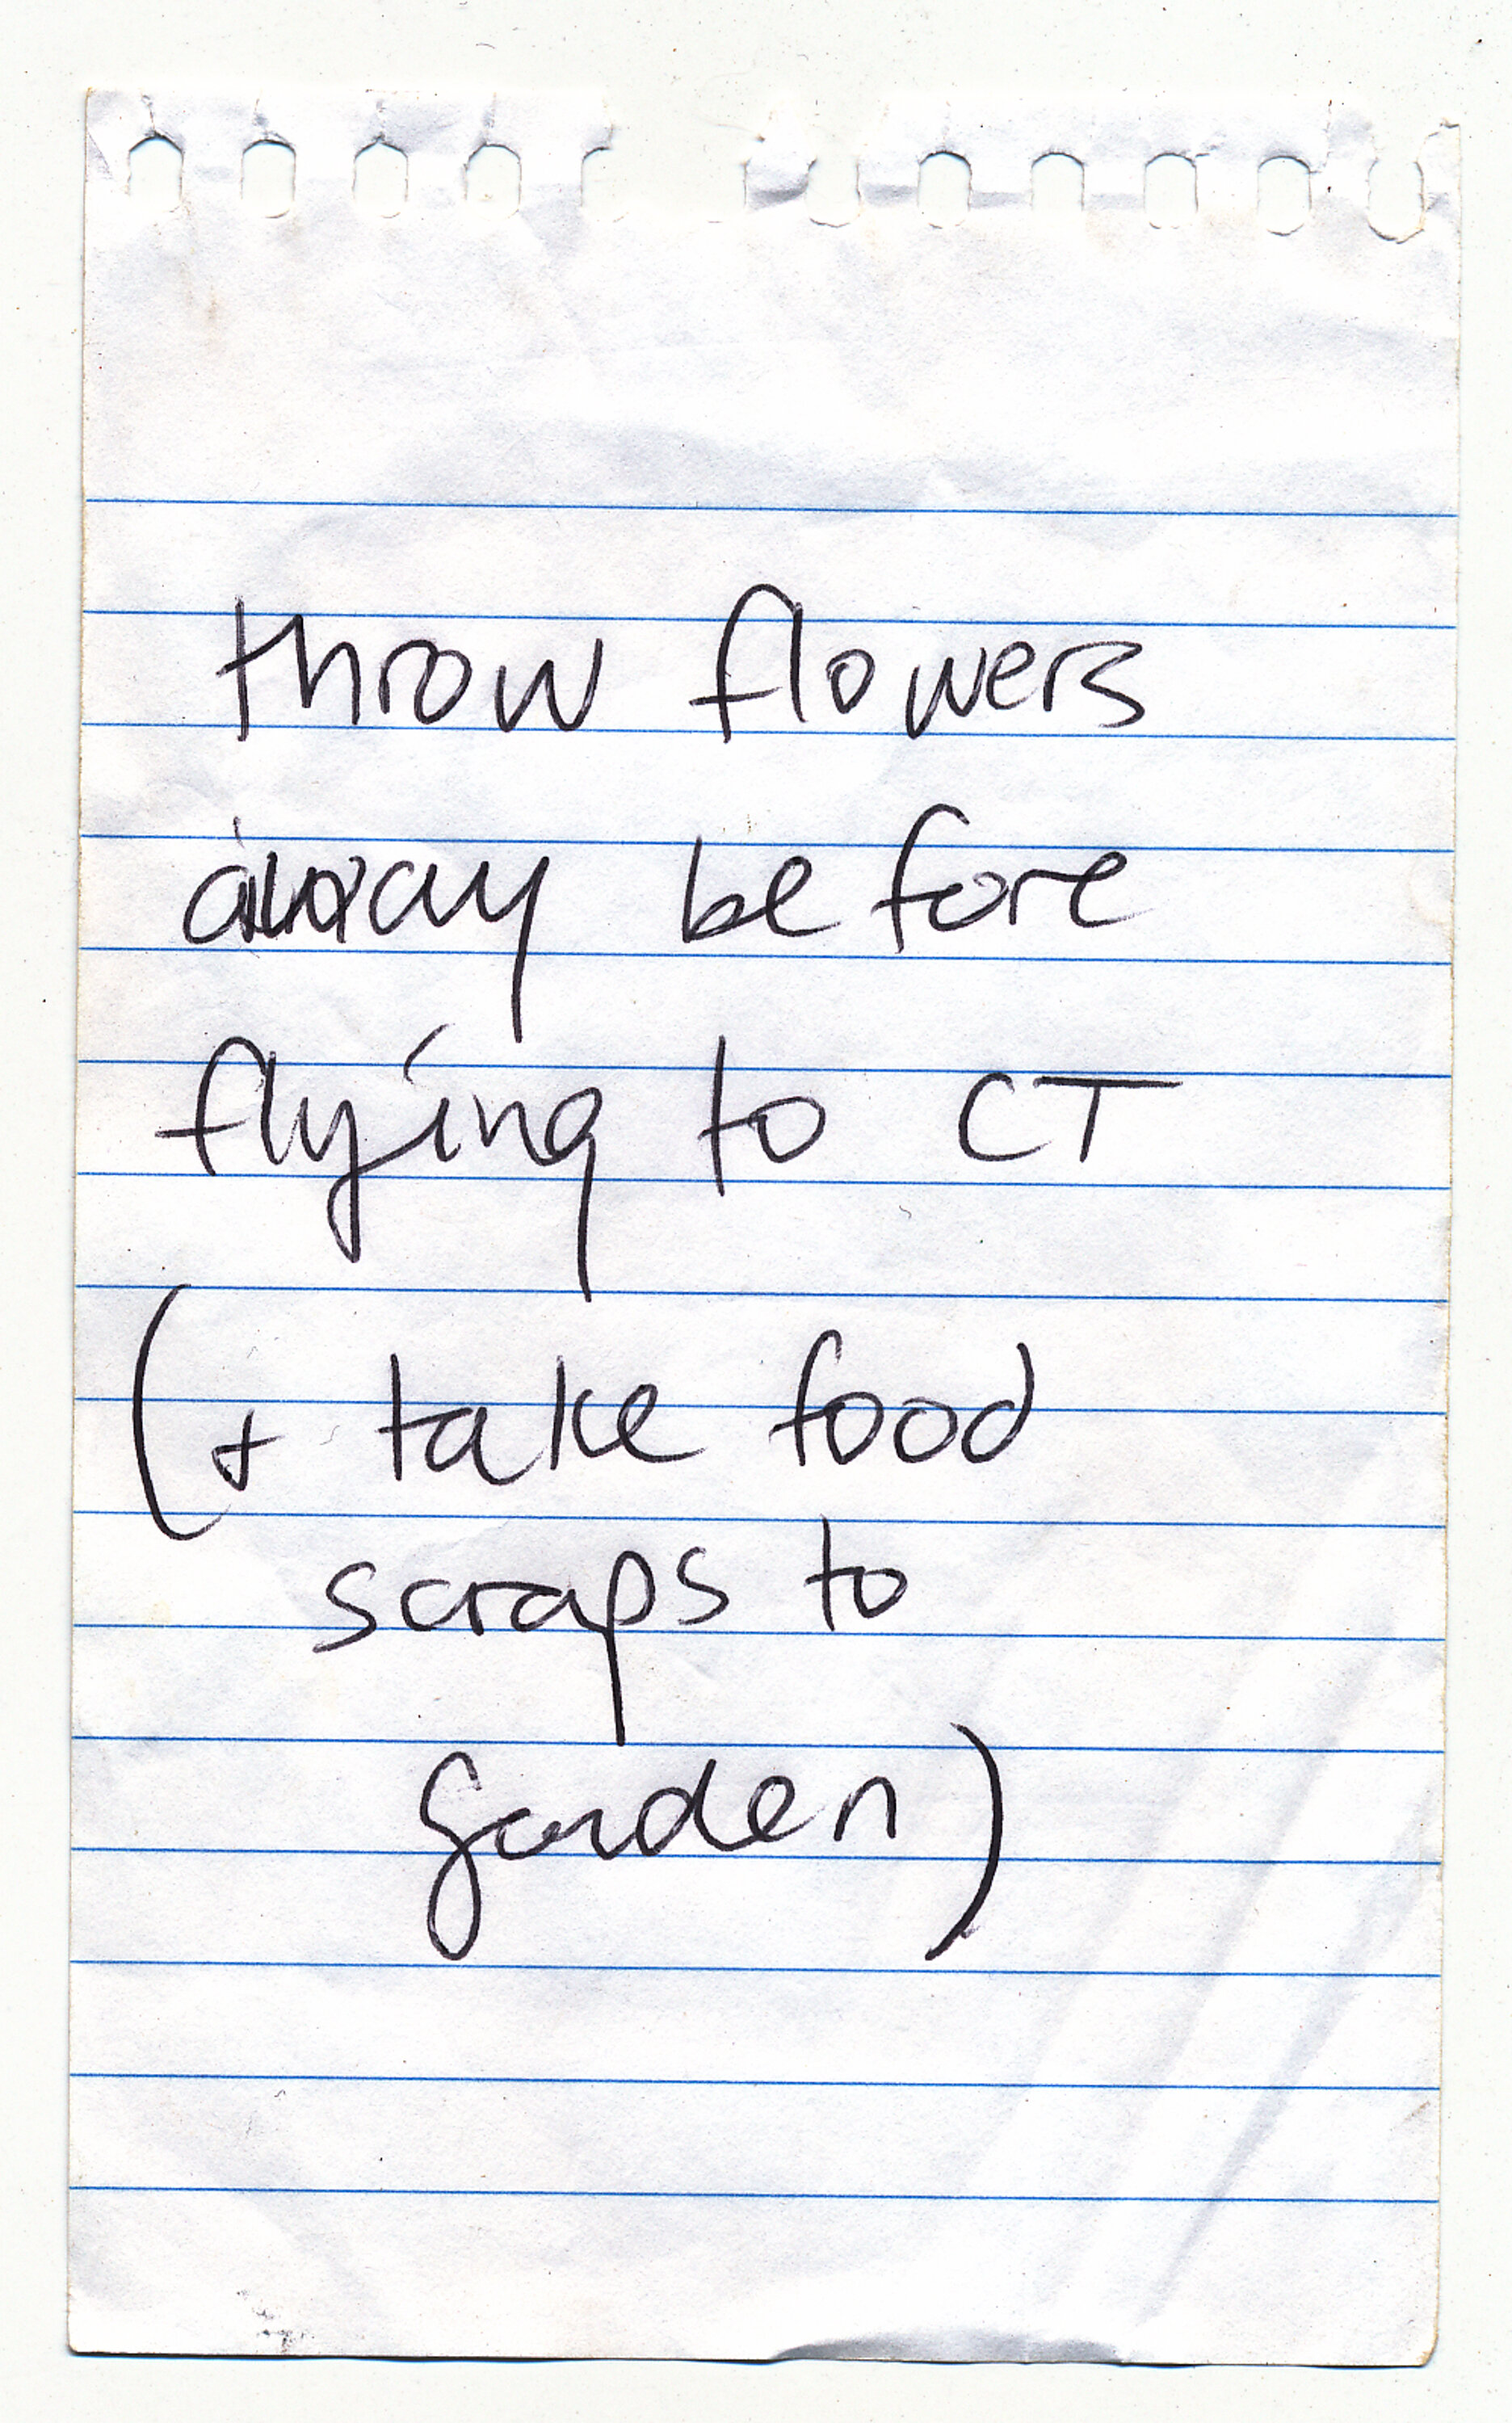 throw flowers
away before
flying to CT
(+ take food
scraps to
garden)